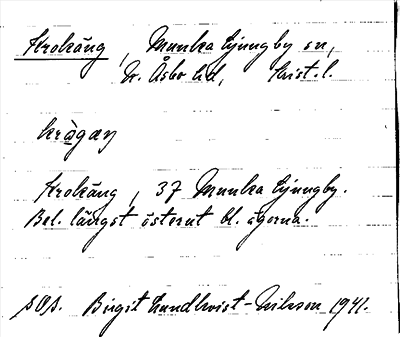 Krokäng, Munka Ljungby sn,
N. Åsbo hd, Krist. l.
kràgaŋ
Krokäng, 37 Munka Ljungby.
Bel. längst österut bl. ägorna.
SOS. Birgit Lundkvist-Nilsson 1941.